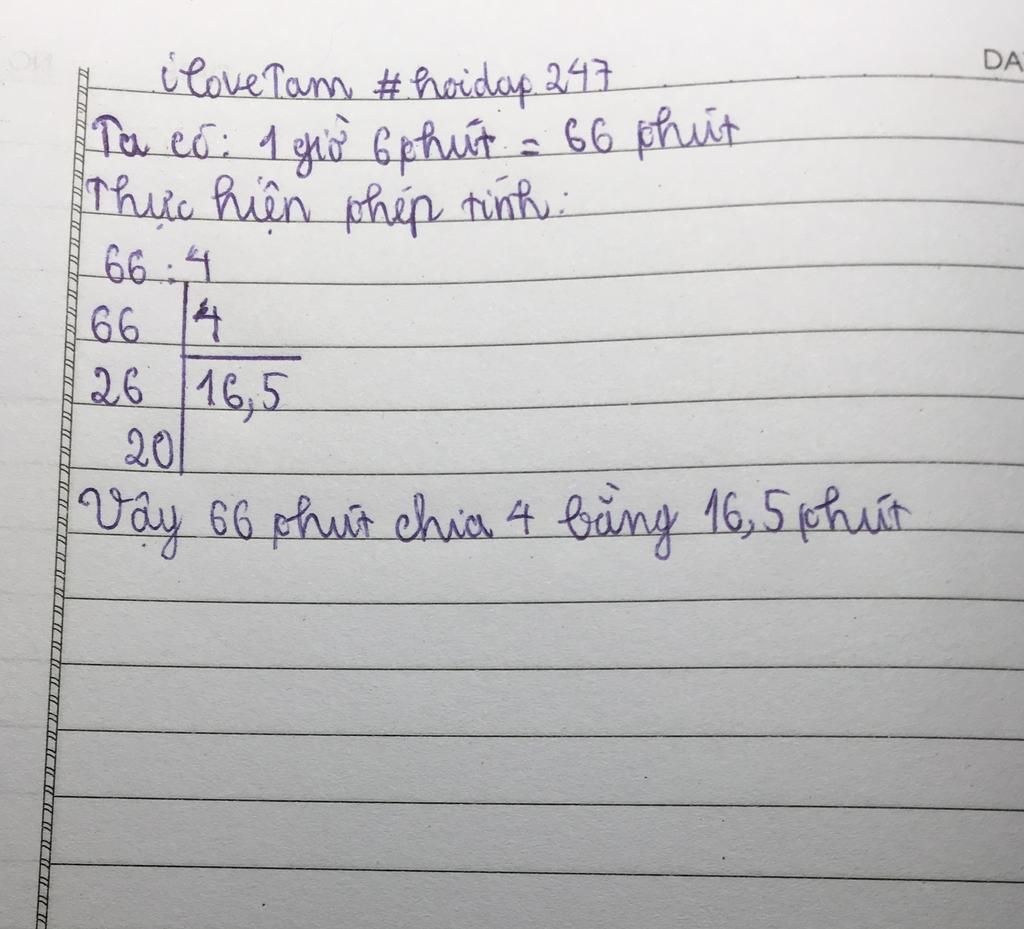 DA
iloveTam #hoidap247
Ta có: 1 giờ 6 phút = 66 phút
Thực hiện phép tính:
66 : 4
66 4
26 16,5
20
Vậy 66 phút chia 4 bằng 16,5 phút